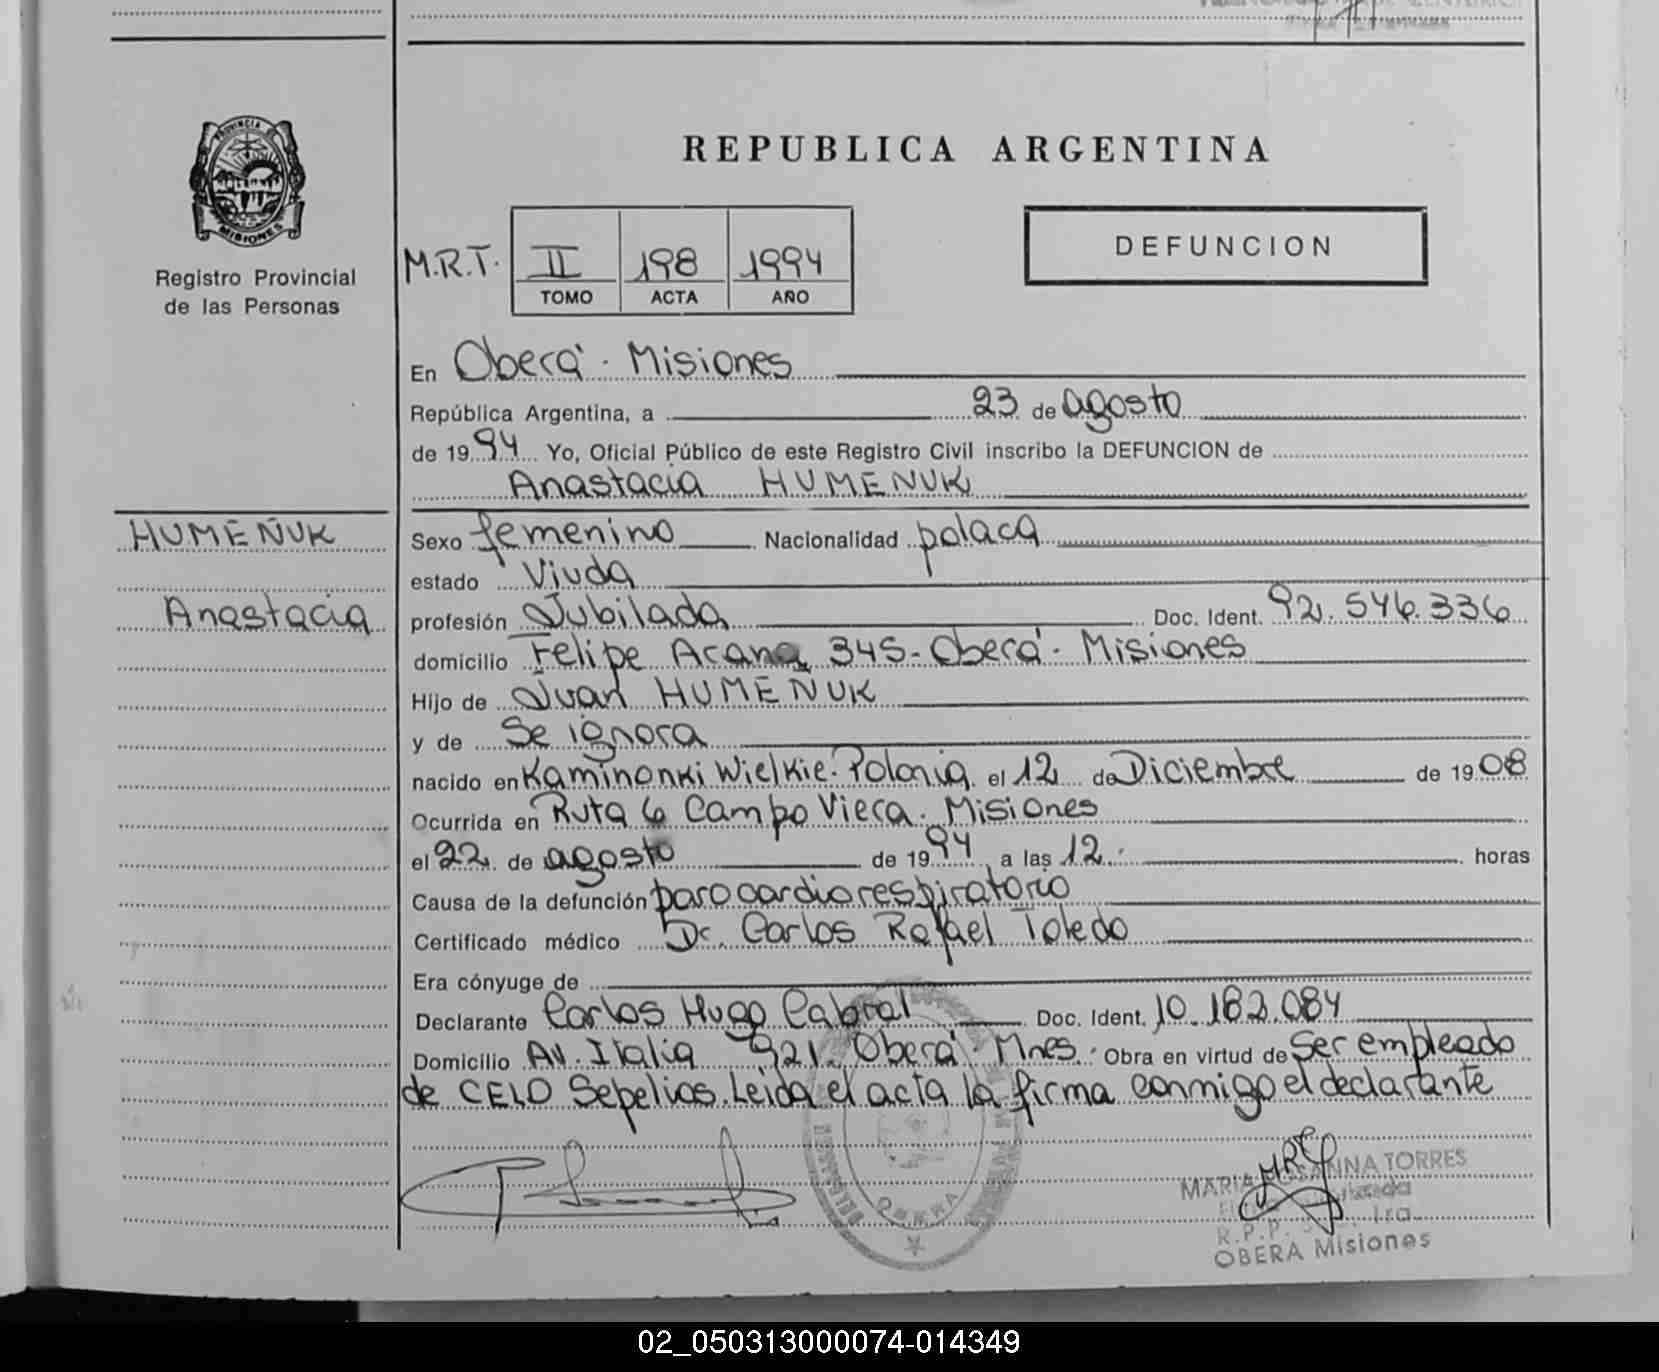 PROVINCIA DE
MISIONES
Registro Provincial
de las Personas
REPUBLICA ARGENTINA
M.R.T. II 198 1994
TOMO ACTA AÑO
DEFUNCION
En Oberá - Misiones
República Argentina, a 23 de agosto
de 1994 Yo, Oficial Público de este Registro Civil inscribo la DEFUNCION de
Anastacia HUMENUK
HUMEÑUK
Anastacia
Sexo femenino Nacionalidad polaca
estado Viuda
profesión Jubilada Doc. Ident. 92.546.336
domicilio Felipe Arana 345- Oberá - Misiones
Hijo de Juan HUMEÑUK
y de Se ignora
nacido en Kaminonki Wielkie. Polonia el 12 de Diciembre de 1908
Ocurrida en Ruta 6 Campo Viera. Misiones
el 22 de agosto de 1994 a las 12. horas
Causa de la defunción paro cardiorespiratorio
Certificado médico Dr. Carlos Rafael Toledo
Era cónyuge de
Declarante Carlos Hugo Cabral Doc. Ident. 10.182.084
Domicilio AV. Italia 921. Oberá - Mnes. Obra en virtud de Ser empleado
de CELO Sepelios. Leida el acta la firma conmigo el declarante
OBERA
MARIA ROSANNA TORRES
R.P.P. 1ra.
OBERA Misiones
02_050313000074-014349